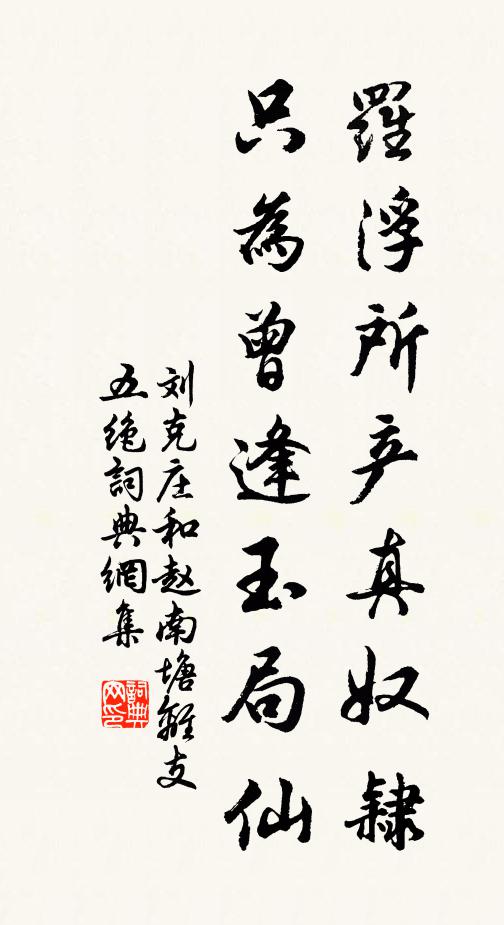 羅浮所产真奴隸
只為曾逢玉局仙
刘克庄和赵南塘離支
五绝詞典網集
詞典網印